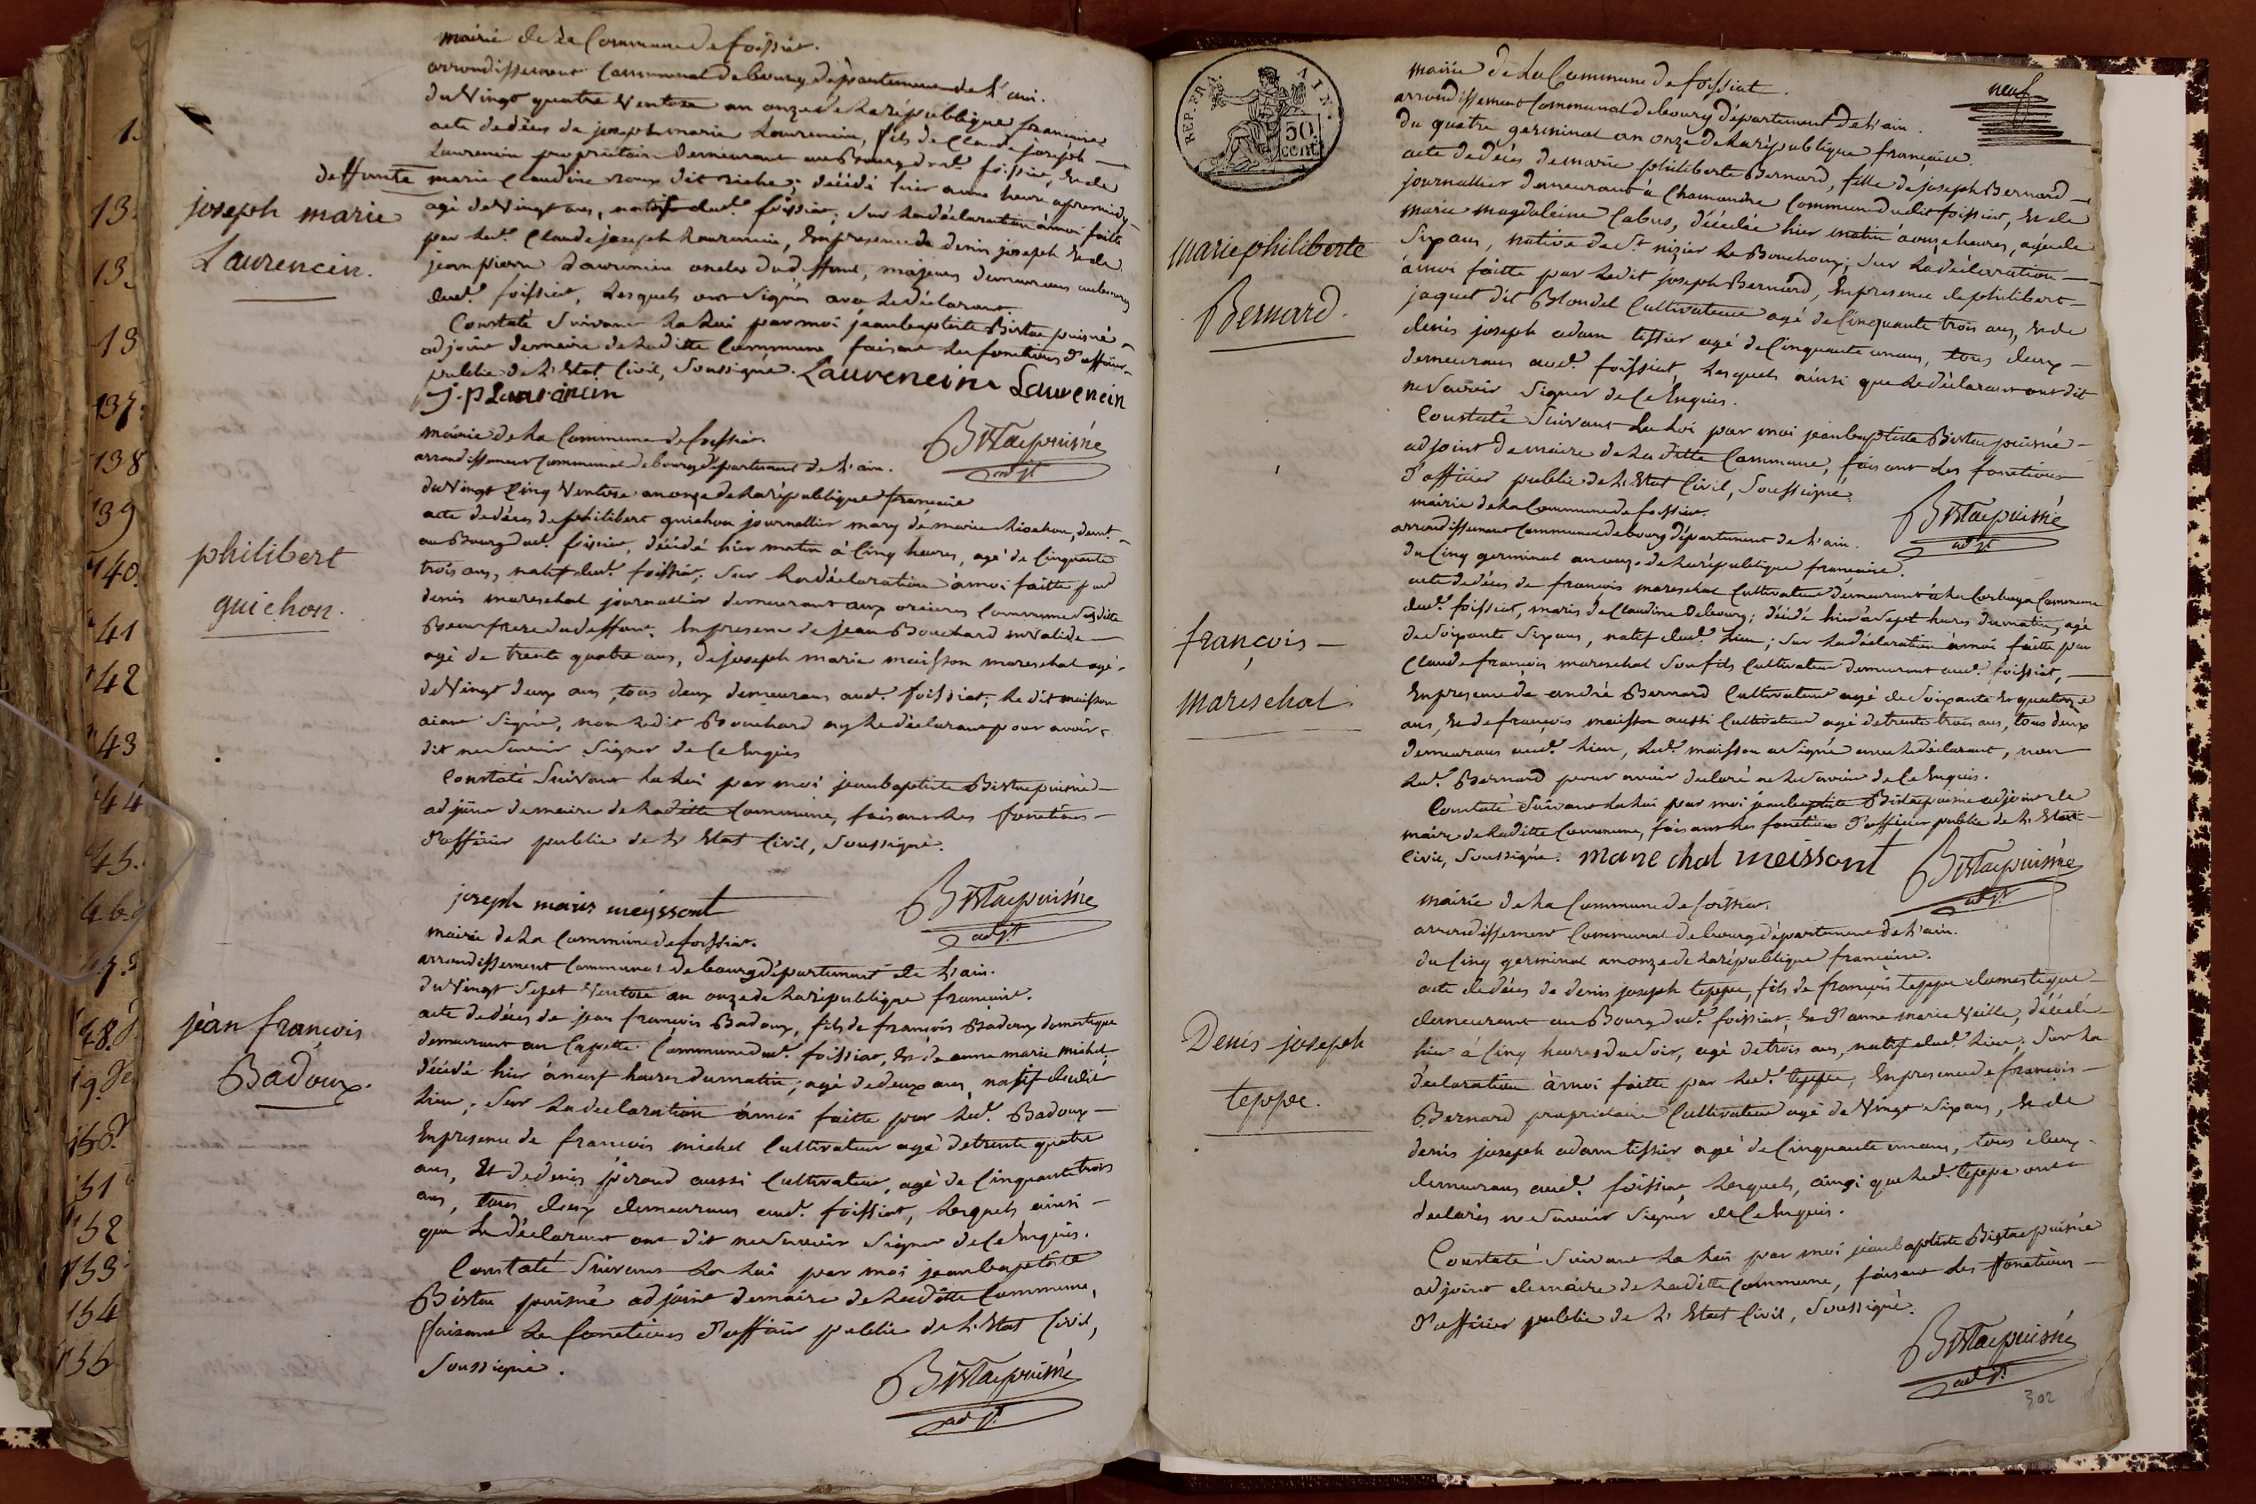 mairie de la Commune de foissiat.
arrondissement Communal de bourg département de L'ain.
du Vingt quatre Ventose an onze de La république française
acte de décès de joseph marie Laurencin, fils de Claude joseph
Laurencin propriétaire demeurant au Bourg dudt foissiat, et de
deffunte marie Claudine roux dit riche; décédé hier a une heure apresmidy
joseph marie
Laurencin.
agé de Vingt ans, natif dudt foissiat; sur La déclaration à moi faitte
par Ledt Claude joseph Laurencin, En presence de denis joseph et de
jean pierre Laurencin oncles du deffunt, majeurs demeurans au bourg
dudt foissiat, Lesquels ont signés avec Le déclarant.
Constaté suivant La Loi par moi jean baptiste Bistac puisné
adjoint de maire de Laditte Commune faisant Les fonctions d'officier
public de L'Etat Civil, soussigné. Laurencin Laurencin
j. p Laurancin
Bistac puisné
adjt
mairie de La Commune de foissiat.
arrondissement Communal de bourg département de L'ain.
du Vingt Cinq Ventose an onze de La république française
acte de décès de philibert guichon journallier mary de marie , demt
au Bourg dudt foissiat, décédé hier matin à Cinq heures, agé de Cinquante
philibert
guichon.
trois ans, natif dudt foissiat; sur La déclaration à moi faitte par
denis mareschal journallier demeurant aux orcieres Commune susditte
Beaufrere du deffunt. En presence de jean Bouchard invalide
agé de trente quatre ans, de joseph marie maisson mareschal agé
de Vingt deux ans, tous deux demeurans audt foissiat; Le dit maisson
aiant signé, non Ledit Bouchard ny Le déclarant pour avoir
dit ne savoir signer de Ce Enquis
Constaté suivant La Loi par moi jean baptiste Bistac puisné
adjoint de maire de Laditte Commune, faisant Les fonctions
d'officier public de L'Etat Civil, soussigné.
joseph maris meyssont
Bistac puisné
adjt
mairie de La Commune de foissiat.
arrondissement Communal de bourg département de L'ain.
du Vingt sept Ventose an onze de La république française.
jean françois
Badoux.
acte de décès de jean françois Badoux, fils de françois Badoux domestique
demeurant au Commune dudt foissiat, et de anne marie michel,
décédé hier à neuf heures du matin, agé de deux ans, natif dudit
Lieu; sur La declaration à moi faitte par Ledt Badoux
En presence de françois michel Cultivateur agé de trente quatre
ans, Et de denis perand aussi Cultivateur, agé de Cinquante trois
ans, tous deux demeurans audt foissiat, Lesquels ainsi
que Le déclarant ont dit ne savoir signer de Ce Enquis.
Constaté suivant La Loi par moi jean baptiste
Bistac puisné adjoint de maire de Laditte Commune,
faisant Les fonctions d'officier public de L'Etat Civil,
soussigné.
Bistac puisné
adjt
13.
13.
13
137.
138
139
140.
41
42
43
44
45.
46.
47.
48.
151
152
153
154
155
REP. FRA.
AIN.
50
cent.
neuf
mairie de La Commune de foissiat.
arrondissement Communal de bourg département de L'ain.
du quatre germinal an onze de La république française.
acte de décès de marie philiberte Bernard, fille de joseph Bernard
journallier demeurant à Chamandre Commune dudit foissiat, et de
marie magdaleine Cabus, décédée hier matin à onze heures, agée de
marie philiberte
Bernard.
six ans, native de St nizier Le Bouchoux; sur La déclaration
à moi faitte par Ledit joseph Bernard, En presence de philibert
jaquet dit Blondel Cultivateur agé de Cinquante trois ans, et de
denis joseph adam tissier agé de Cinquante un ans, tous deux
demeurans audt foissiat Lesquels ainsi que Le déclarant ont dit
ne savoir signer de Ce Enquis.
Constaté suivant La Loi par moi jean baptiste Bistac puisné
adjoint de maire de Laditte Commune, faisant Les fonctions
d'officier public de L'Etat Civil, soussigné.
Bistac puisné
adjt
mairie de La Commune de foissiat.
arrondissement Communal de bourg département de L'ain.
du Cinq germinal an onze de La république française.
acte de décès de françois mareschal Cultivateur demeurant à La Commune
dudt foissiat, maris de Claudine Debourg; décédé hier à sept heures du matin, agé
françois
mareschal
de soixante six ans, natif dudt Lieu; sur La déclaration à moi faitte par
Claude françois mareschal son fils Cultivateur demeurant audt foissiat,
En presence de andré Bernard Cultivateur agé de soixante et quatorze
ans, et de françois maisson aussi Cultivateur agé de trente trois ans, tous deux
demeurans audt Lieu, Ledt maisson a signé avec Le déclarant, non
Ledt Bernard pour avoir declaré ne Le savoir de Ce Enquis.
Constaté suivant La Loi par moi jean baptiste Bistac puisné adjoint de
maire de Laditte Commune, faisant Les fonctions d'officier public de L'Etat
Civil, soussigné. marechal meissont
Bistac puisné
adjt
mairie de La Commune de foissiat.
arrondissement Communal de bourg département de L'ain.
du Cinq germinal an onze de La république française.
acte de décès de denis joseph teppe, fils de françois teppe domestique
demeurant au Bourg dudt foissiat, et d'anne marie Veille, décédé
Denis joseph
teppe.
hier à Cinq heures du soir, agé de trois ans, natif dudt Lieu; sur La
declaration à moi faitte par Ledt teppe, En presence de françois
Bernard propriétaire Cultivateur agé de Vingt six ans, et de
denis joseph adam tissier agé de Cinquante un ans, tous deux
demeurans audt foissiat, Lesquels, ainsi que Ledt teppe ont
declarés ne savoir signer de Ce Enquis.
Constaté suivant La Loi par moi jean baptiste Bistac puisné
adjoint de maire de Laditte Commune, faisant Les fonctions
d'officier public de L'Etat Civil, soussigné.
Bistac puisné
adjt
302